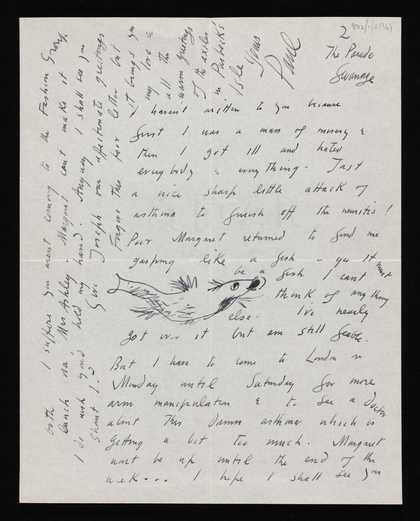 2
The Parade
Swanage
I haven't written to you because
first I was a mass of misery &
then I got ill and hated
everybody & everything. Just
a nice sharp little attack of
asthma to finish off the neuritis!
Poor Margaret returned to find me
gasping like a fish - yes it must
be a fish I can't
think of anything
else. I've nearly
got over it but am still feeble.
But I have to come to London on
Monday until Saturday for more
arm manipulation & to see a doctor
about this Damn asthma which is
getting a bit too much. Margaret
wont be up until the end of the
week... I hope I shall see you
both. I suppose you arent coming to the Fashion Group
lunch via Mrs Ashley. Margaret can't make it
I do wish you'd hold my hand. Anyway I shall see you
shant I?
Give Joseph our affectionate greetings
Forgive this poor letter but
it brings you
my love &
all the
warm greetings
of the exiles
in Purbeck's
Isle
Yours
Paul